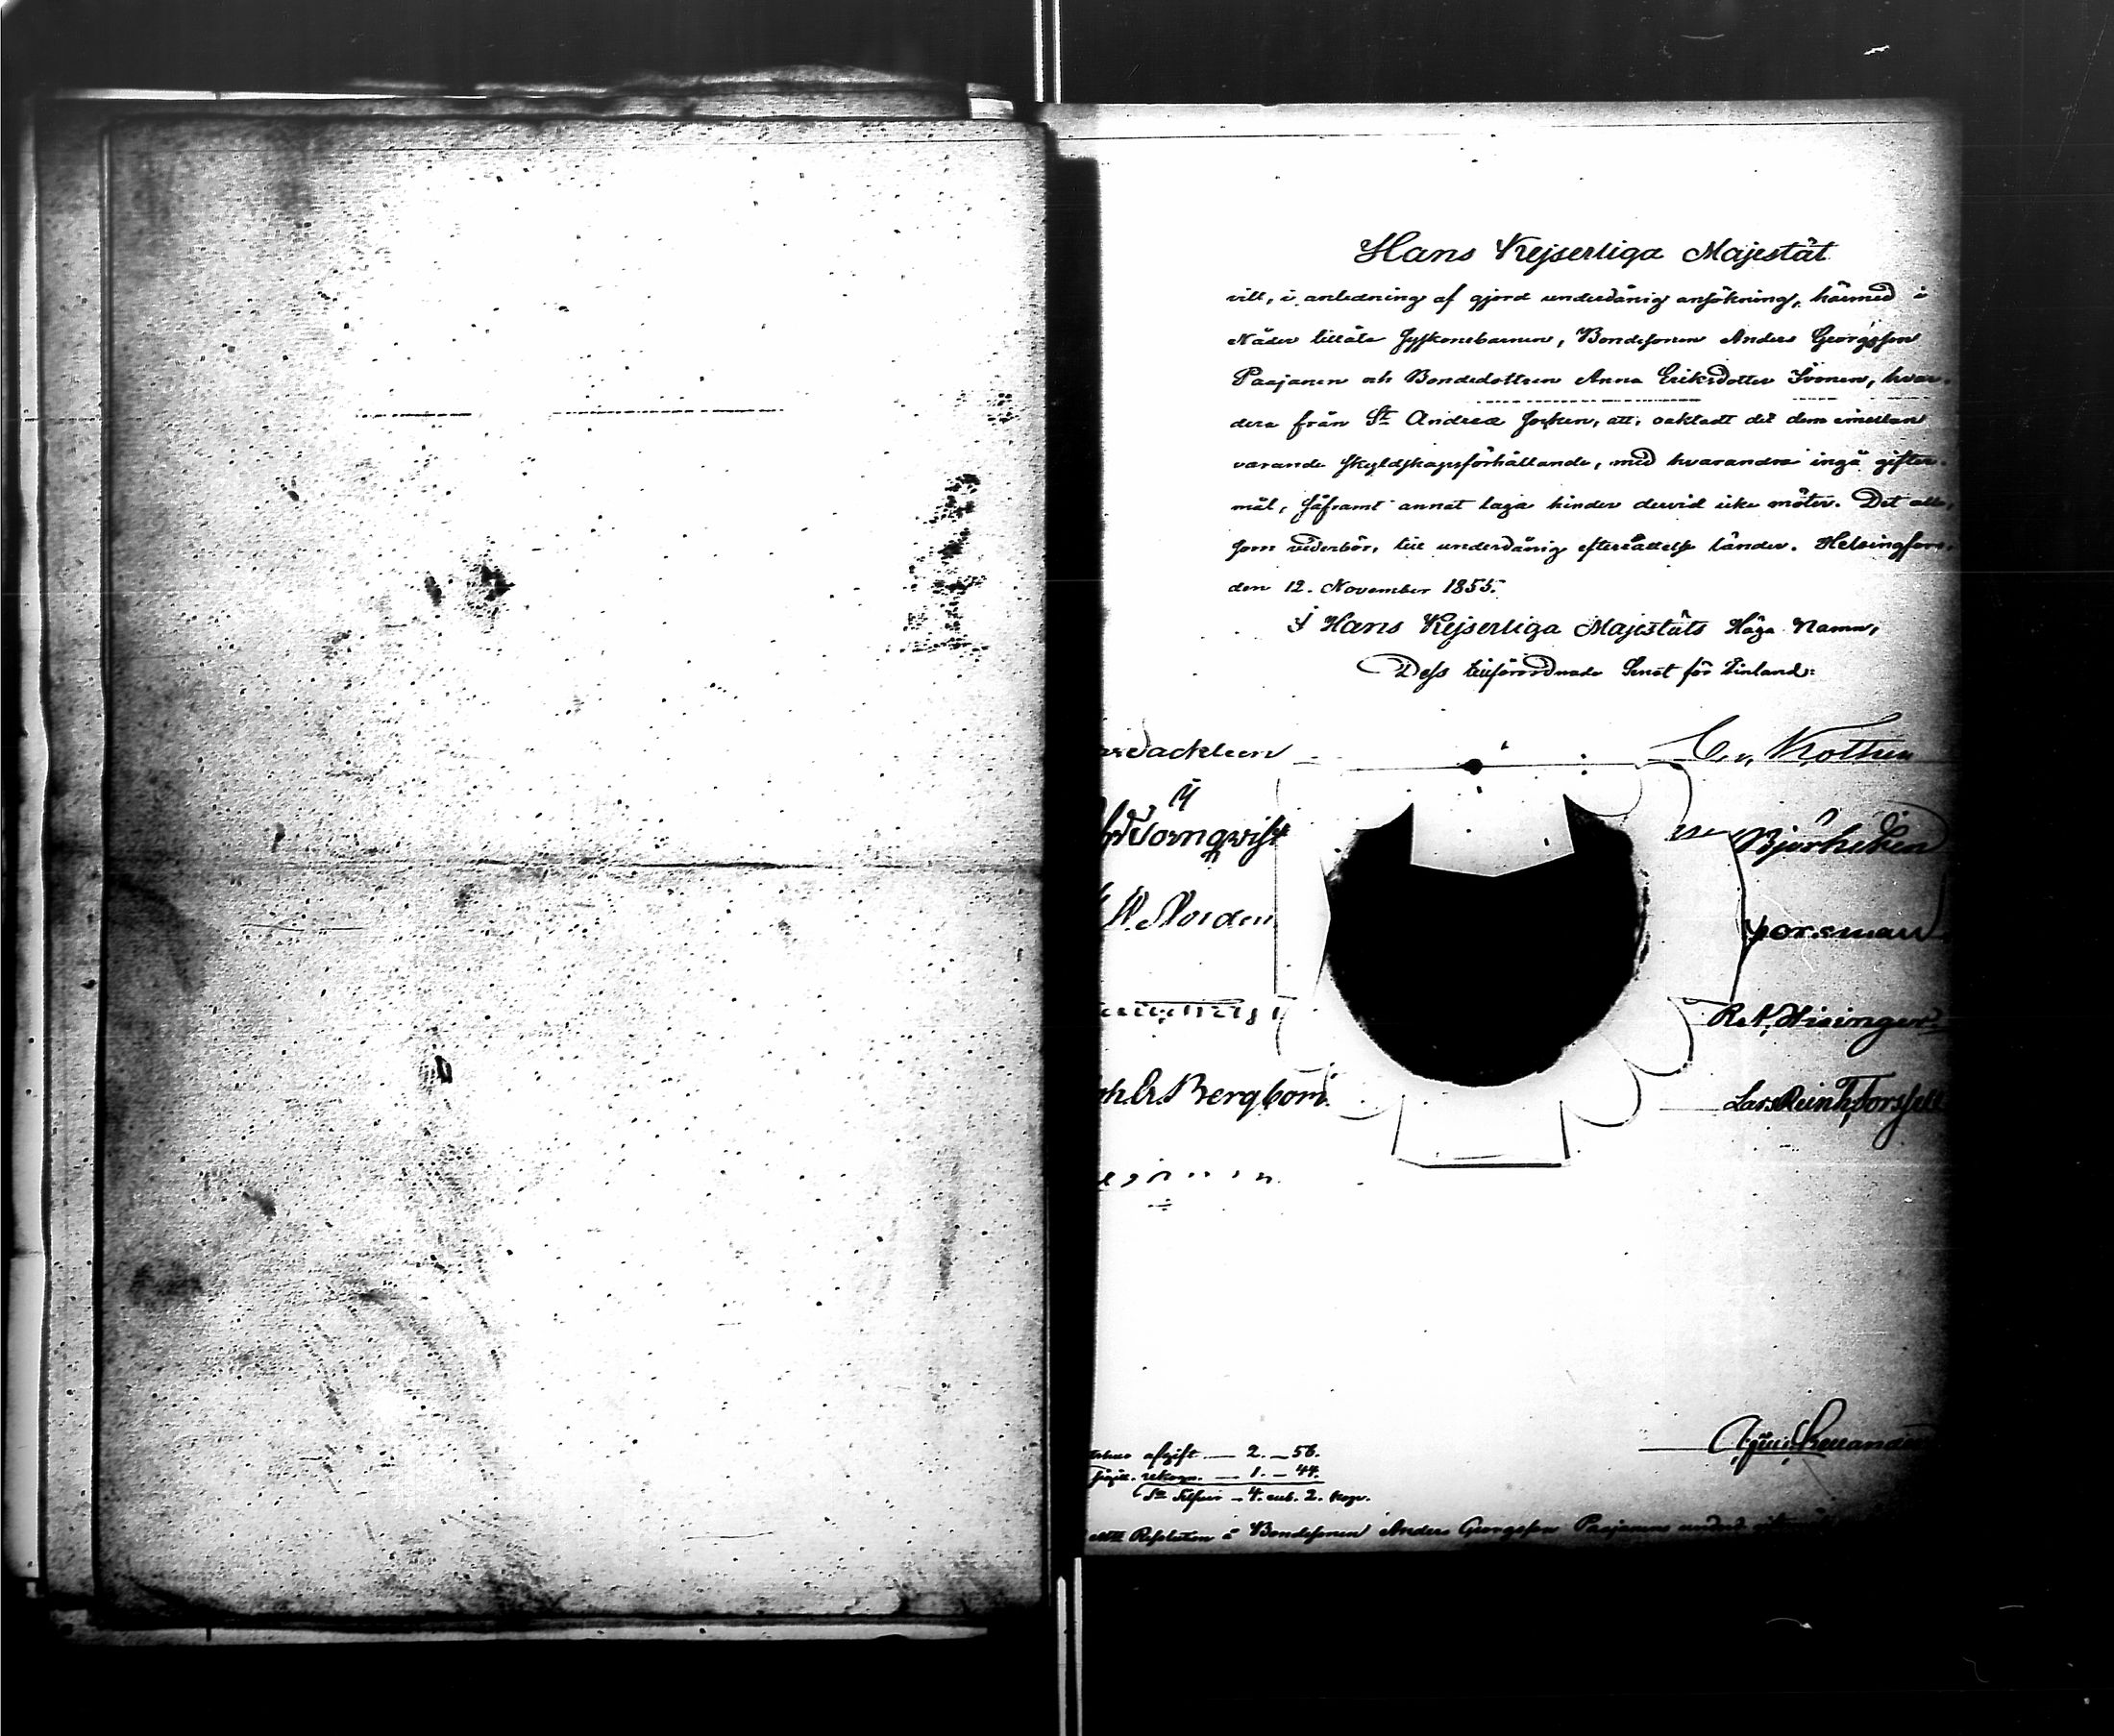 Hans Kejserliga Majestät
vill, i anledning af gjord underdånig ansökning, härmed i
Nåder tillåta Syskonebarnen, Bondesonen Anders Georgsson
Paajanen och Bondedottren Anna Eriksdotter Ivonen, hvar-
dera från St Andreæ Socken, att, oaktadt det dem emellan
varande skyldskapsförhållande, med hvarandra ingå gifter-
mål, såframt annat laga hinder dervid icke möter. Det alle,
som vederbör, till underdånig efterrättelse länder. Helsingfors,
den 12. November 1855.
I Hans Kejserliga Majestäts Höga Namn,
Dess tillförordnade Senat för Finland:
C. v. Kothen
Törnqvist
Björkstén
W. Norden
Forsman
R. V. Hisinger
Bergbom
Lars Reinh. Forssell
afgift — 2. — 58.
1. — 44.
Sa Silfver — 4. rub. 2. kop.
Resolution å Bondesonen Anders Georgsson Paajanens